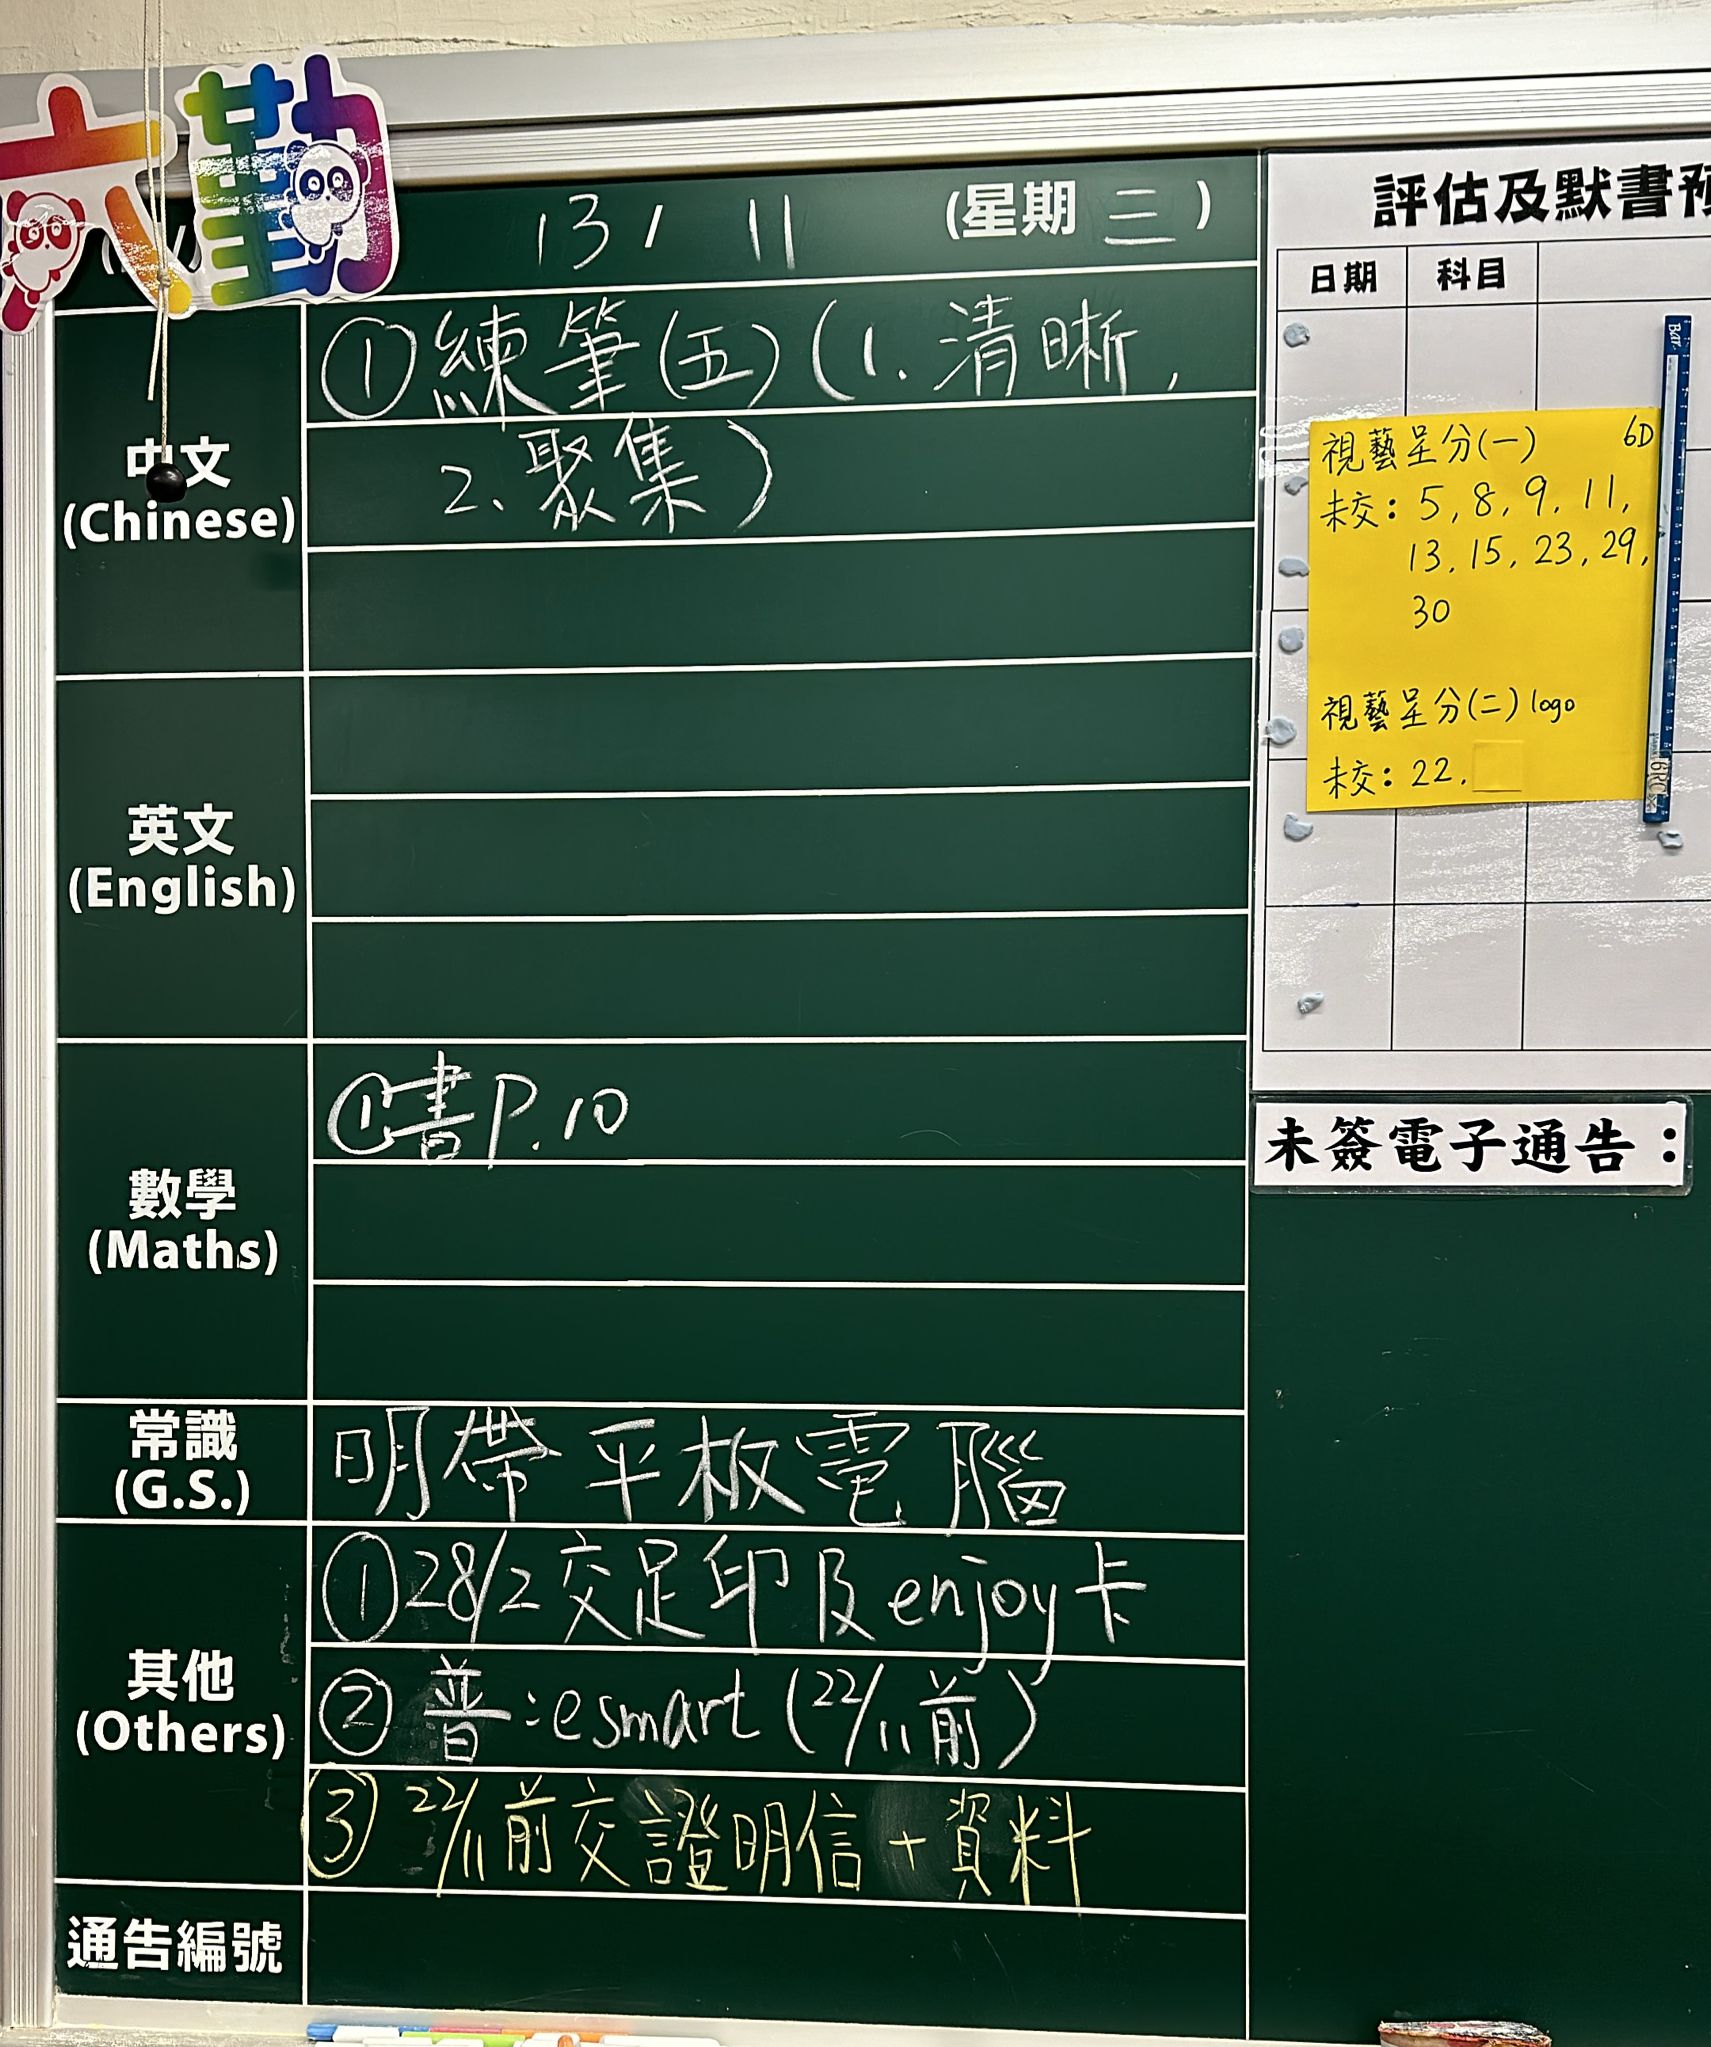 六勤
13 / 11 (星期三)
中文
(Chinese)
①練筆(五)(1.清晰,
2.聚集)
英文
(English)
數學
(Maths)
①書P.10
常識
(G.S.)
明帶平板電腦
其他
(Others)
①28/2交足印及enjoy卡
②普:esmart(22/11前)
③22/11前交證明信+資料
通告編號
評估及默書預
日期 科目
視藝呈分(一) 6D
未交:5,8,9,11,
13,15,23,29,
30
視藝呈分(二)logo
未交:22,
未簽電子通告: